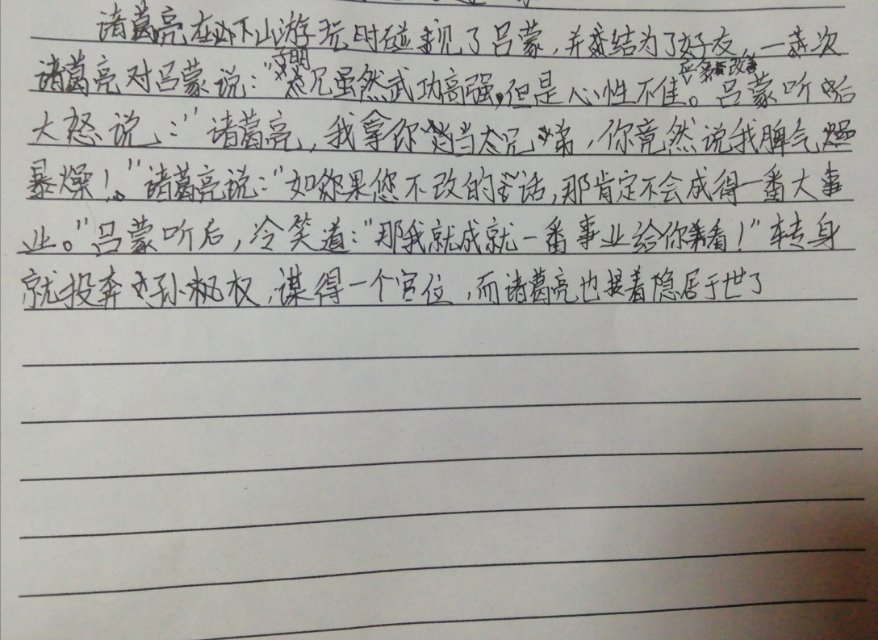 诸葛亮在下山游玩时碰见了吕蒙，并结为了好友，一次
诸葛亮对吕蒙说："子明兄虽然武功高强，但是心性不佳，应多番改善。吕蒙听后
大怒说："诸葛亮，我拿你当大兄弟，你竟然说我脾气
暴燥！"诸葛亮说："如果您不改的话，那肯定不会成得一番大事
业。"吕蒙听后，冷笑道："那我就成就一番事业给你看！"转身
就投奔孙权，谋得一个官位，而诸葛亮也接着隐居于世了